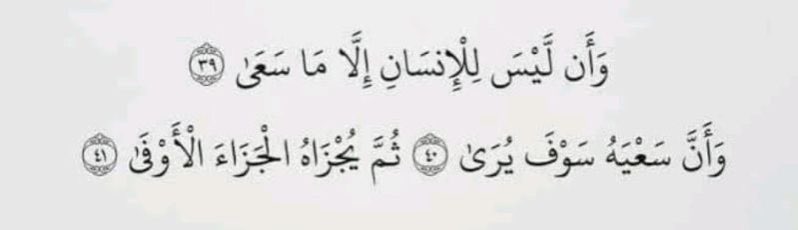 وَأَن لَّيْسَ لِلْإِنسَانِ إِلَّا مَا سَعَىٰ ٣٩
وَأَنَّ سَعْيَهُ سَوْفَ يُرَىٰ ٤٠ ثُمَّ يُجْزَاهُ الْجَزَاءَ الْأَوْفَىٰ ٤١